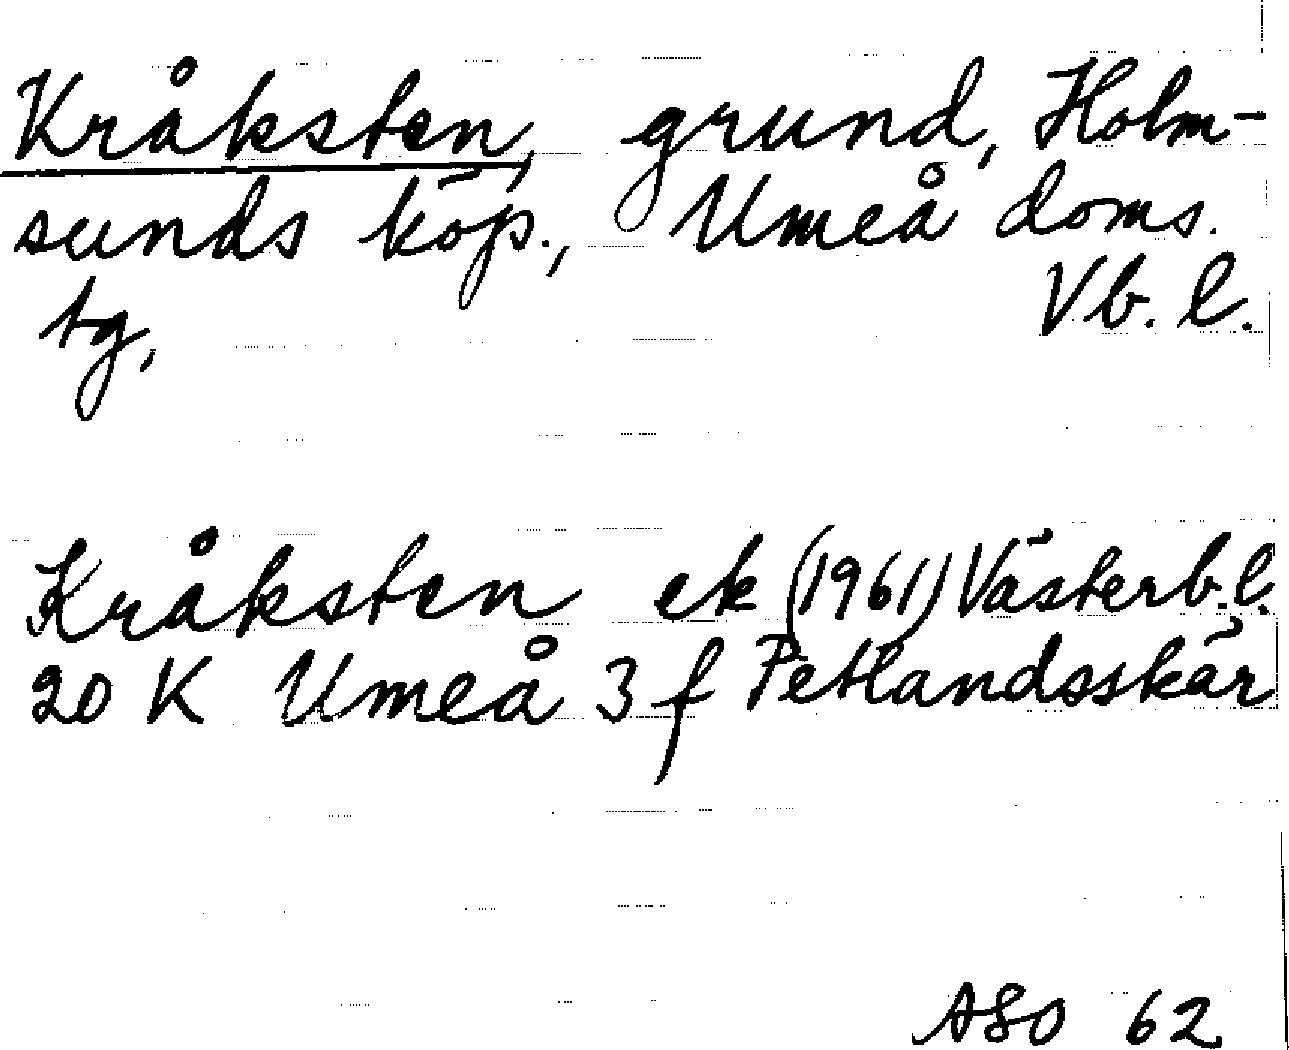 Kråksten, grund, Holm-
sunds köp., Umeå doms.
tg, Vb. l.
Kråksten ek (1961) Västerb. l.
20 K Umeå 3 f Petlandsskär
ASO 62